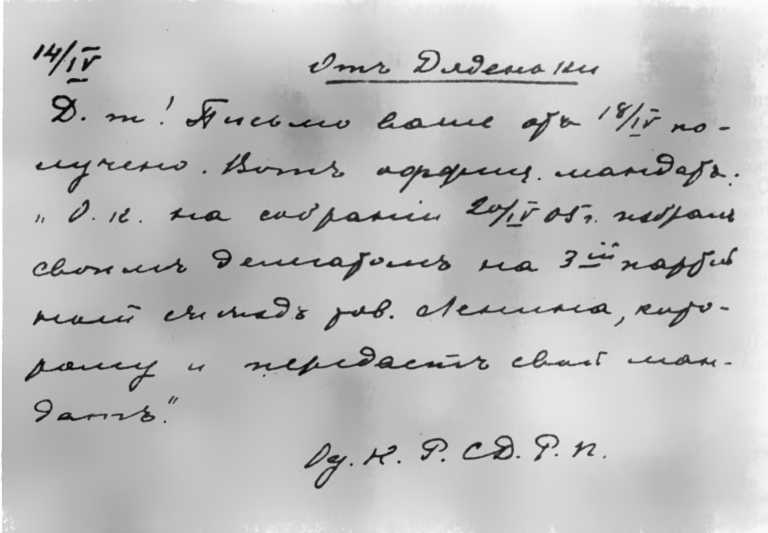 14/IV
Отъ Дяденьки
Д. т! Письмо ваше отъ 18/IV по-
лучено. Вотъ оффиц. мандатъ:
„О. К. на собраніи 20/IV 05 г. избралъ
своимъ делегатомъ на 3-ій партій
ный съездъ тов. Ленина, кото-
рому и передастъ свой ман-
датъ."
Од. К. Р. С Д. Р. П.